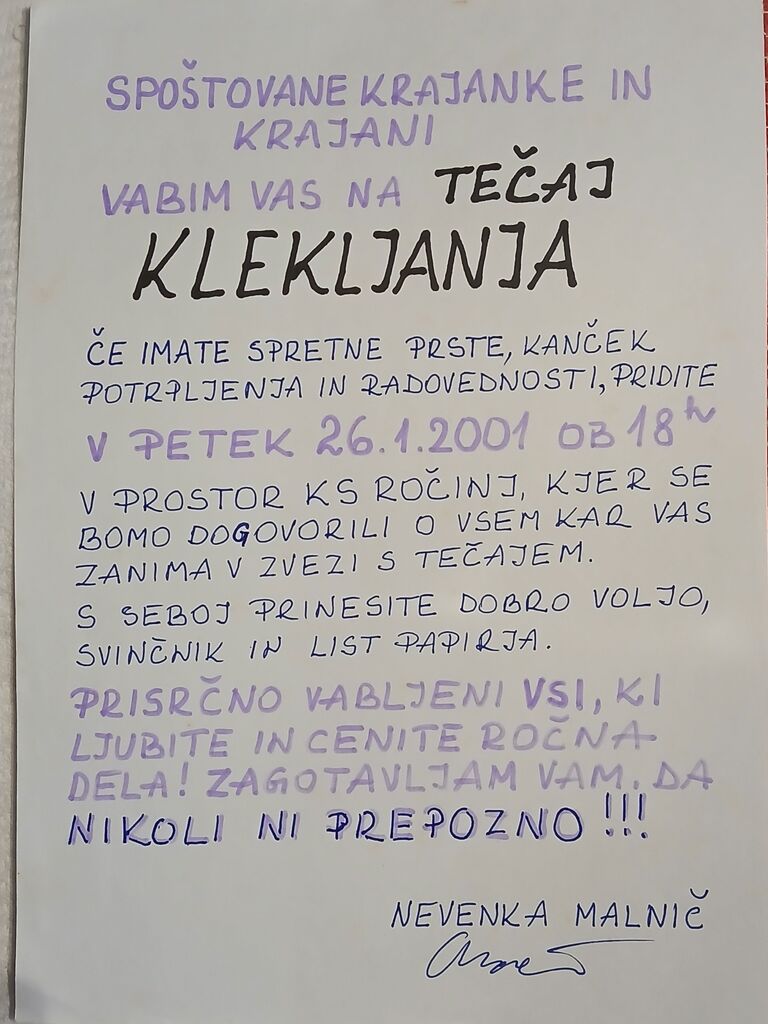 SPOŠTOVANE KRAJANKE IN
KRAJANI
VABIM VAS NA TEČAJ
KLEKLJANJA
ČE IMATE SPRETNE PRSTE, KANČEK
POTRPLJENJA IN RADOVEDNOSTI, PRIDITE
V PETEK 26.1.2001 OB 18h
V PROSTOR KS ROČINJ, KJER SE
BOMO DOGOVORILI O VSEM KAR VAS
ZANIMA V ZVEZI S TEČAJEM.
S SEBOJ PRINESITE DOBRO VOLJO,
SVINČNIK IN LIST PAPIRJA.
PRISRČNO VABLJENI VSI, KI
LJUBITE IN CENITE ROČNA
DELA! ZAGOTAVLJAM VAM, DA
NIKOLI NI PREPOZNO!!!
NEVENKA MALNIČ